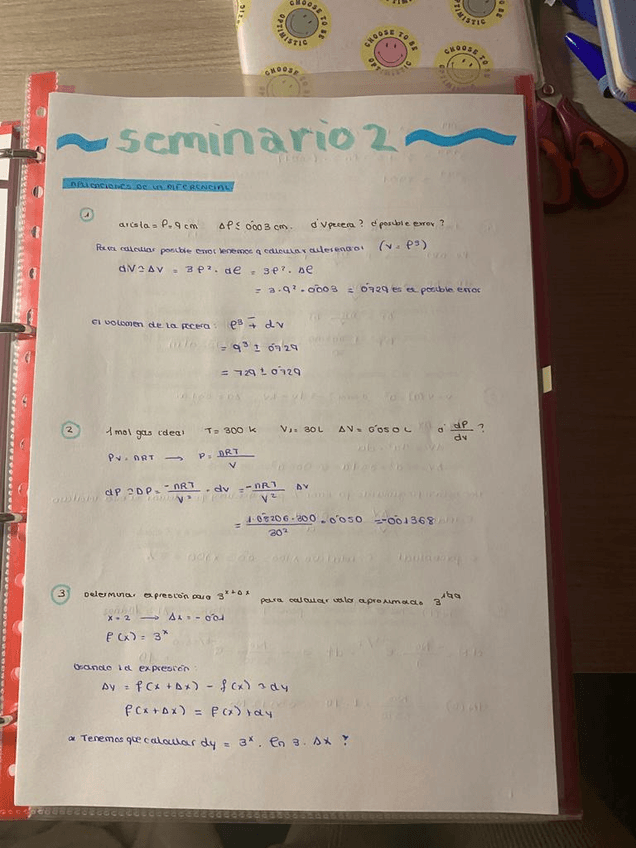 CHOOSE TO BE OPTIMISTIC
CHOOSE TO BE OPTIMISTIC
CHOOSE TO BE
seminario 2
APLICACIONES DE LA DIFERENCIAL
1
arista = l = 9 cm Δl ≤ 0'003 cm. d Vpecera? d posible error?
Para calcular posible error tenemos q calcular diferencial (V = l³)
dV ≃ ΔV = 3l² · dl = 3l² · Δl
= 3 · 9² · 0'003 = 0'729 es el posible error
El volumen de la pecera: l³ ± dv
= 9³ ± 0'729
= 729 ± 0'729
2
1 mol gas ideal T = 300 K V₁ = 30L ΔV = 0'050 L d dP/dv ?
PV = nRT → P = nRT/V
dP ≃ DP = -nRT/V² · dv = -nRT/V² ΔV
= 1·0'8206·300/30² · 0'050 = -0'01368
3
Determinar expresión para 3^x+Δx para calcular valor aproximado 3^1'99
x = 2 → Δx = -0'01
f(x) = 3^x
Usando la expresión:
ΔV = f(x + Δx) - f(x) ≃ dy
f(x + Δx) = f(x) + dy
Tenemos que calcular dy = 3^x · ln 3 · Δx